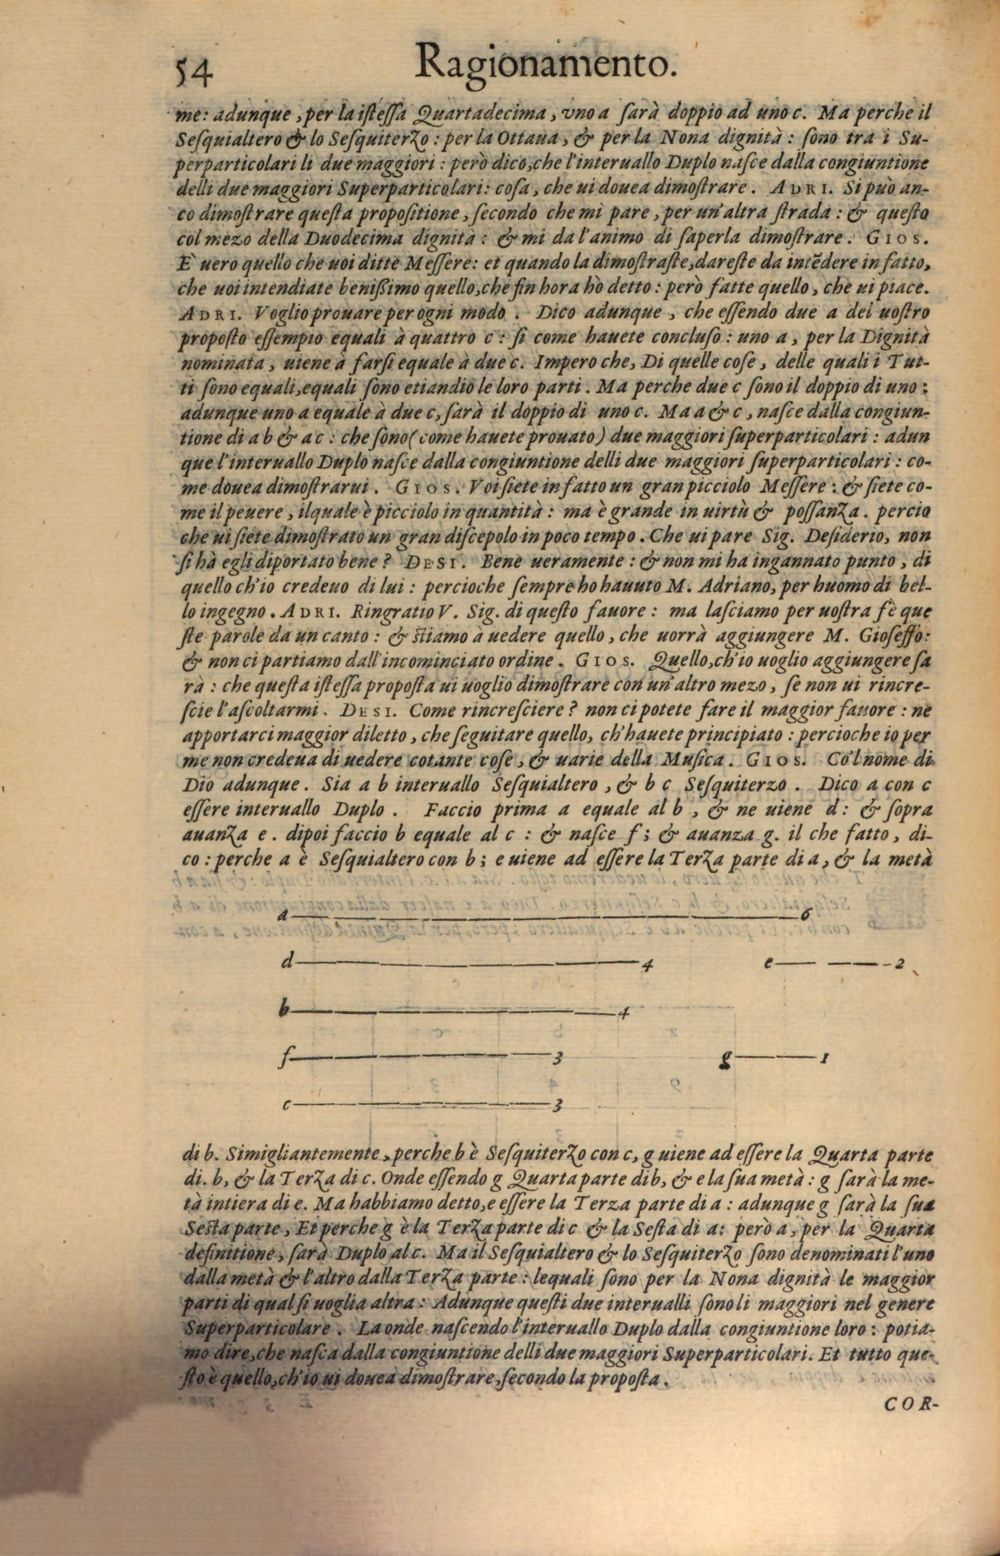 54 Ragionamento.
me: adunque, per la iſteſſa Quartadecima, vno a ſarà doppio ad uno c. Ma perche il
Seſquialtero & lo Seſquiterzo: per la Ottaua, & per la Nona dignità: ſono tra i Su-
perparticolari li due maggiori: però dico, che l'interuallo Duplo naſce dalla congiuntione
delli due maggiori Superparticolari: coſa, che ui douea dimoſtrare. ADRI. Si può an-
co dimoſtrare queſta propoſitione, ſecondo che mi pare, per un'altra ſtrada: & queſto
col mezo della Duodecima dignità: & mi da l'animo di ſaperla dimoſtrare. GIOS.
E' uero quello che uoi ditte Meſſere: et quando la dimoſtraſte, dareſte da intẽdere in fatto,
che uoi intendiate beniſſimo quello, che fin hora hò detto: però fatte quello, che ui piace.
ADRI. Voglio prouare per ogni modo. Dico adunque, che eſſendo due a del uoſtro
propoſto eſſempio equali à quattro c: ſi come hauete concluſo: uno a, per la Dignità
nominata, uiene à farſi equale à due c. Impero che, Di quelle coſe, delle quali i Tut-
ti ſono equali, equali ſono etiandio le loro parti. Ma perche due c ſono il doppio di uno:
adunque uno a equale à due c, ſarà il doppio di uno c. Ma a & c, naſce dalla congiun-
tione di a b & a c: che ſono (come hauete prouato) due maggiori ſuperparticolari: adun
que l'interuallo Duplo naſce dalla congiuntione delli due maggiori ſuperparticolari: co-
me douea dimoſtrarui. GIOS. Voi ſiete in fatto un gran picciolo Meſſere: & ſiete co-
me il peuere, ilquale è picciolo in quantità: ma è grande in uirtù & poſſanza. percio
che ui ſiete dimoſtrato un gran diſcepolo in poco tempo. Che ui pare Sig. Deſiderio, non
ſi hà egli diportato bene? DESI. Bene ueramente: & non mi ha ingannato punto, di
quello ch'io credeuo di lui: percioche ſempre ho hauuto M. Adriano, per huomo di bel-
lo ingegno. ADRI. Ringratio V. Sig. di queſto fauore: ma laſciamo per uoſtra fè que
ſte parole da un canto: & ſtiamo à uedere quello, che uorrà aggiungere M. Gioſeffo:
& non ci partiamo dall'incominciato ordine. GIOS. Quello, ch'io uoglio aggiungere ſa
rà: che queſta iſteſſa propoſta ui uoglio dimoſtrare con un'altro mezo, ſe non ui rincre-
ſcie l'aſcoltarmi. DESI. Come rincreſciere? non ci potete fare il maggior fauore: ne
apportarci maggior diletto, che ſeguitare quello, ch'hauete principiato: percioche io per
me non credeua di uedere cotante coſe, & uarie della Muſica. GIOS. Co'l nome di
Dio adunque. Sia a b interuallo Seſquialtero, & b c Seſquiterzo. Dico a con c
eſſere interuallo Duplo. Faccio prima a equale al b, & ne uiene d: & ſopra
auanza e. dipoi faccio b equale al c: & naſce f; & auanza g. il che fatto, di-
co: perche a è Seſquialtero con b; e uiene ad eſſere la Terza parte di a, & la metà
a 6
d 4 e 2
b 4
f 3 g 1
c 3
di b. Simigliantemente, perche b è Seſquiterzo con c, g uiene ad eſſere la Quarta parte
di. b, & la Terza di c. Onde eſſendo g Quarta parte di b, & e la ſua metà: g ſarà la me-
tà intiera di e. Ma habbiamo detto, e eſſere la Terza parte di a: adunque g ſarà la ſua
Seſta parte, Et perche g è la Terza parte di c & la Seſta di a: però a, per la Quarta
definitione, ſarà Duplo al c. Ma il Seſquialtero & lo Seſquiterzo ſono denominati l'uno
dalla metà & l'altro dalla Terza parte: lequali ſono per la Nona dignità le maggior
parti di qual ſi uoglia altra: Adunque queſti due interualli ſono li maggiori nel genere
Superparticolare. La onde naſcendo l'interuallo Duplo dalla congiuntione loro: potia-
mo dire, che naſca dalla congiuntione delli due maggiori Superparticolari. Et tutto que-
ſto è quello, ch'io ui douea dimoſtrare, ſecondo la propoſta.
COR-